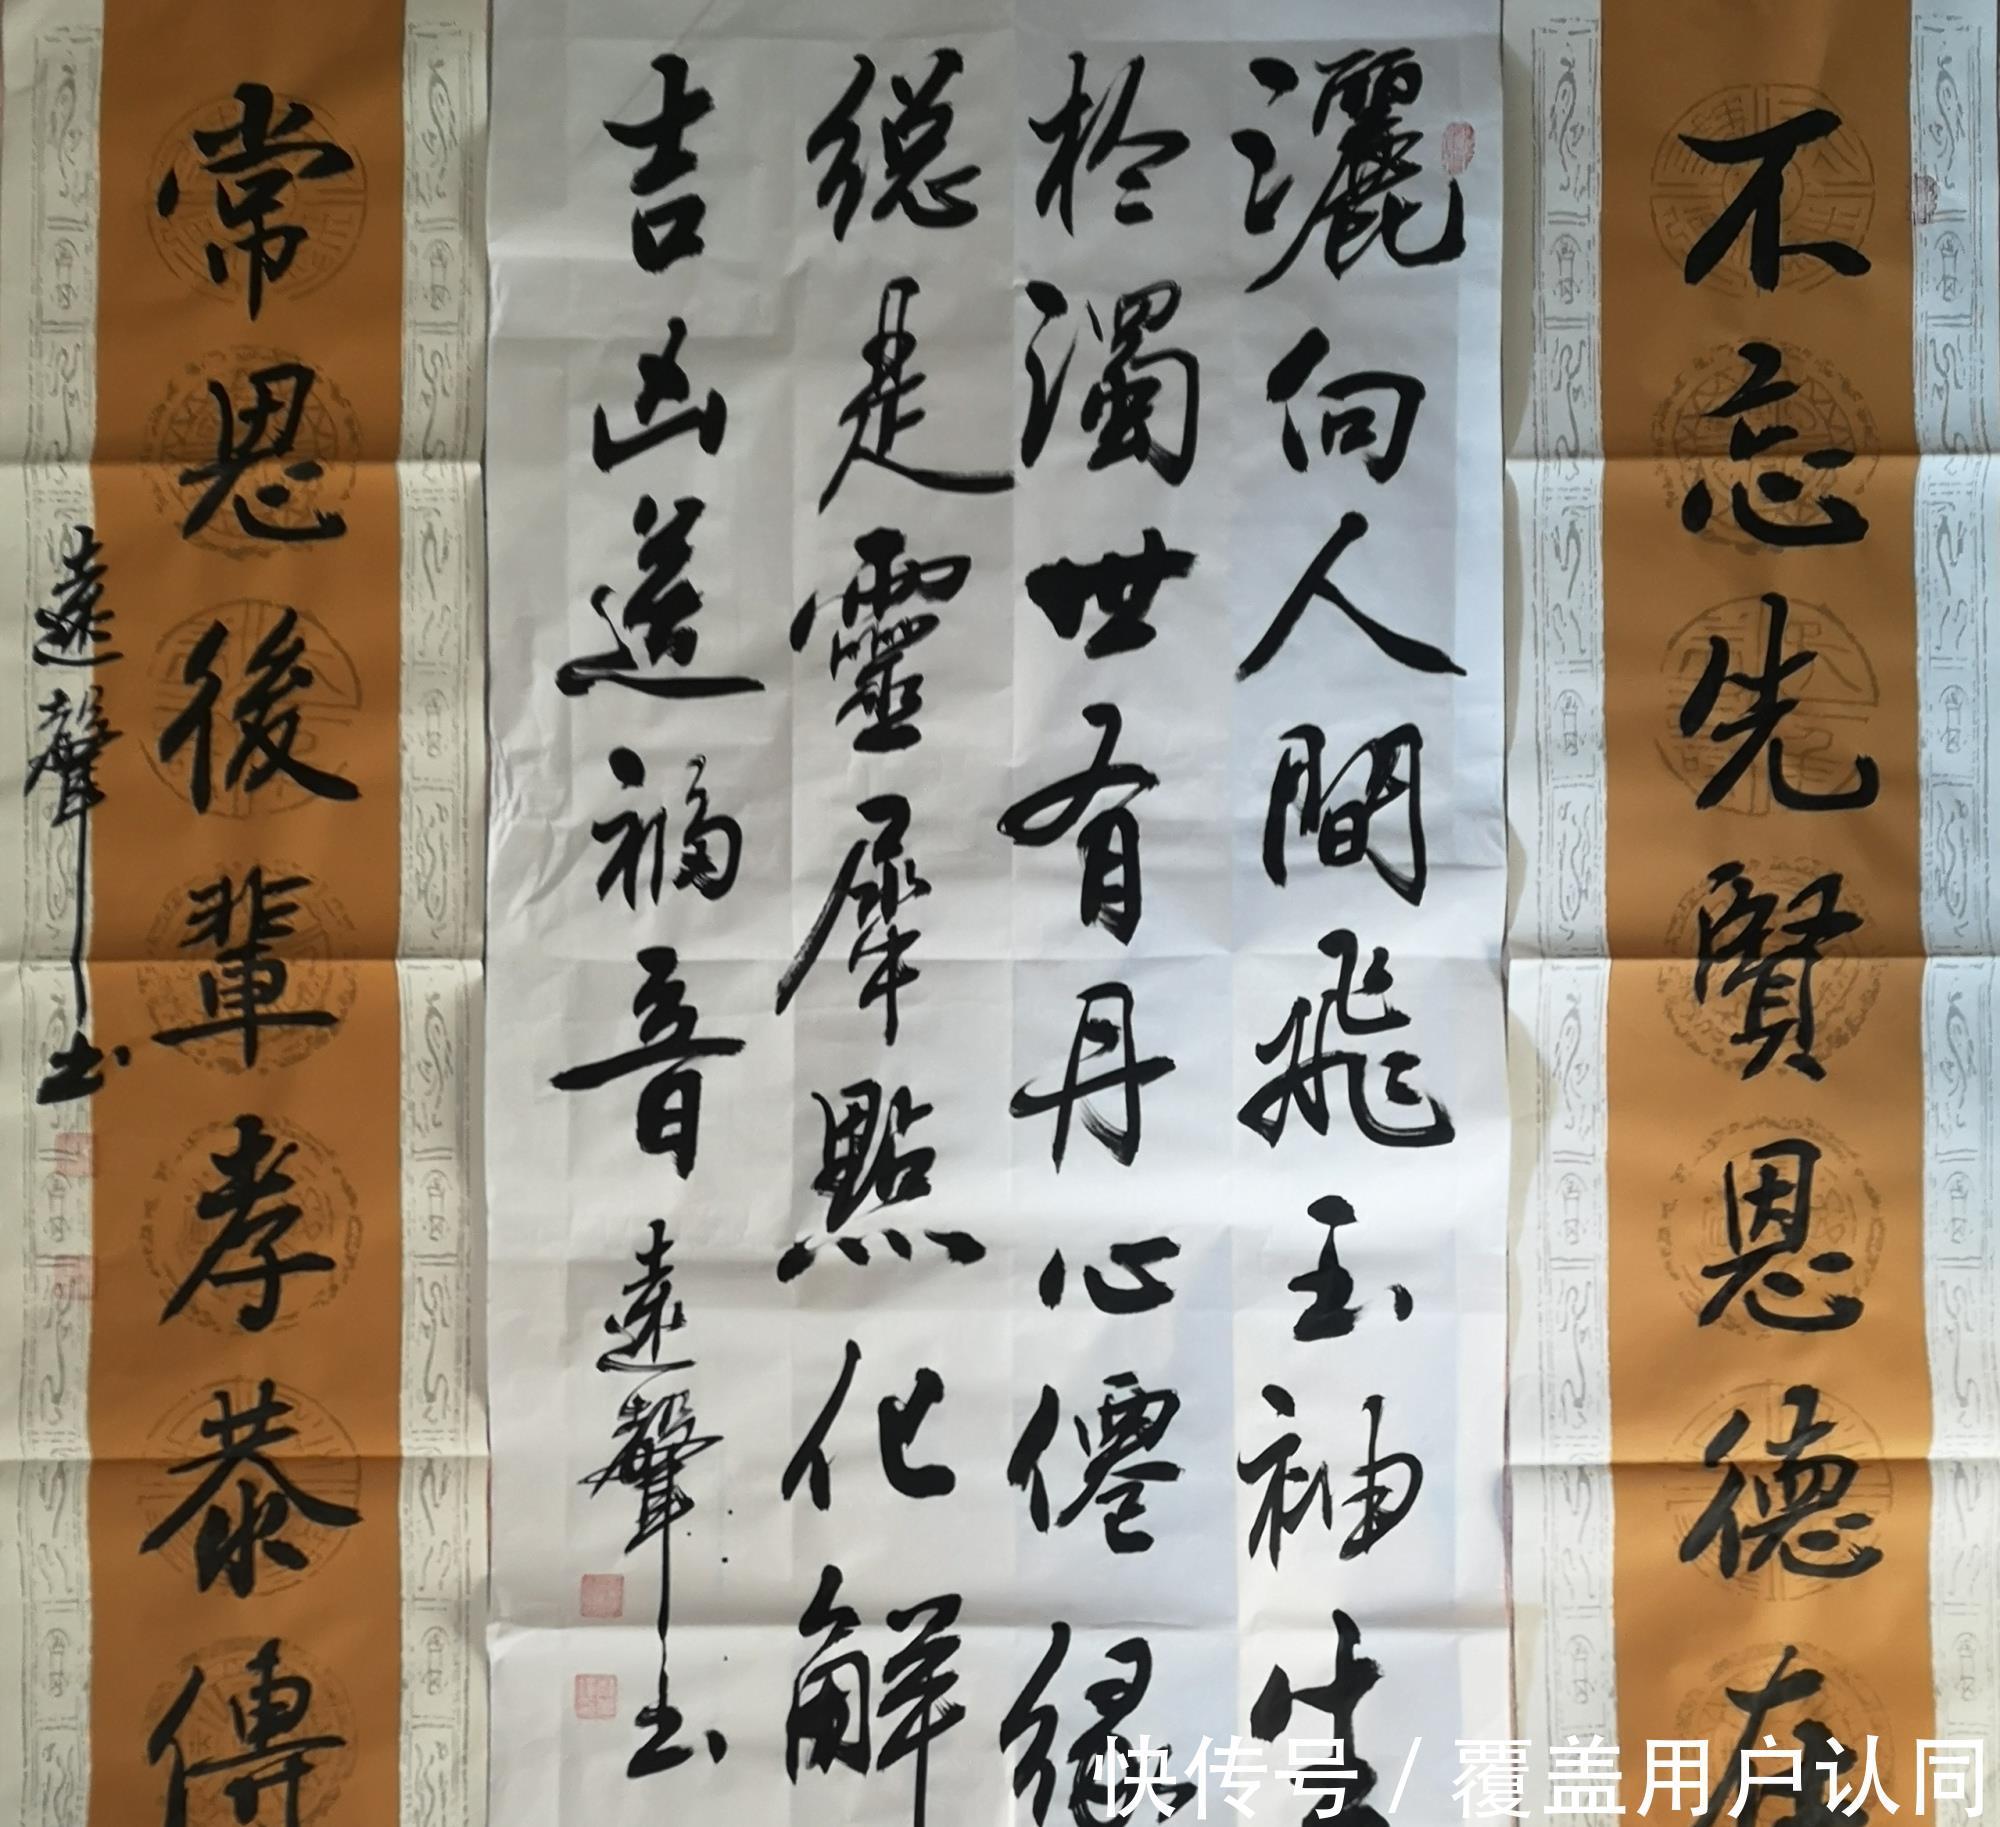 不忘先賢恩德在
灑向人間飛玉神生
於濁世有丹心僊緣
総是靈犀點化解
吉凶送福音 遠聲书
常恩後輩孝恭傳
遠聲书
快传号 / 覆盖用户认同